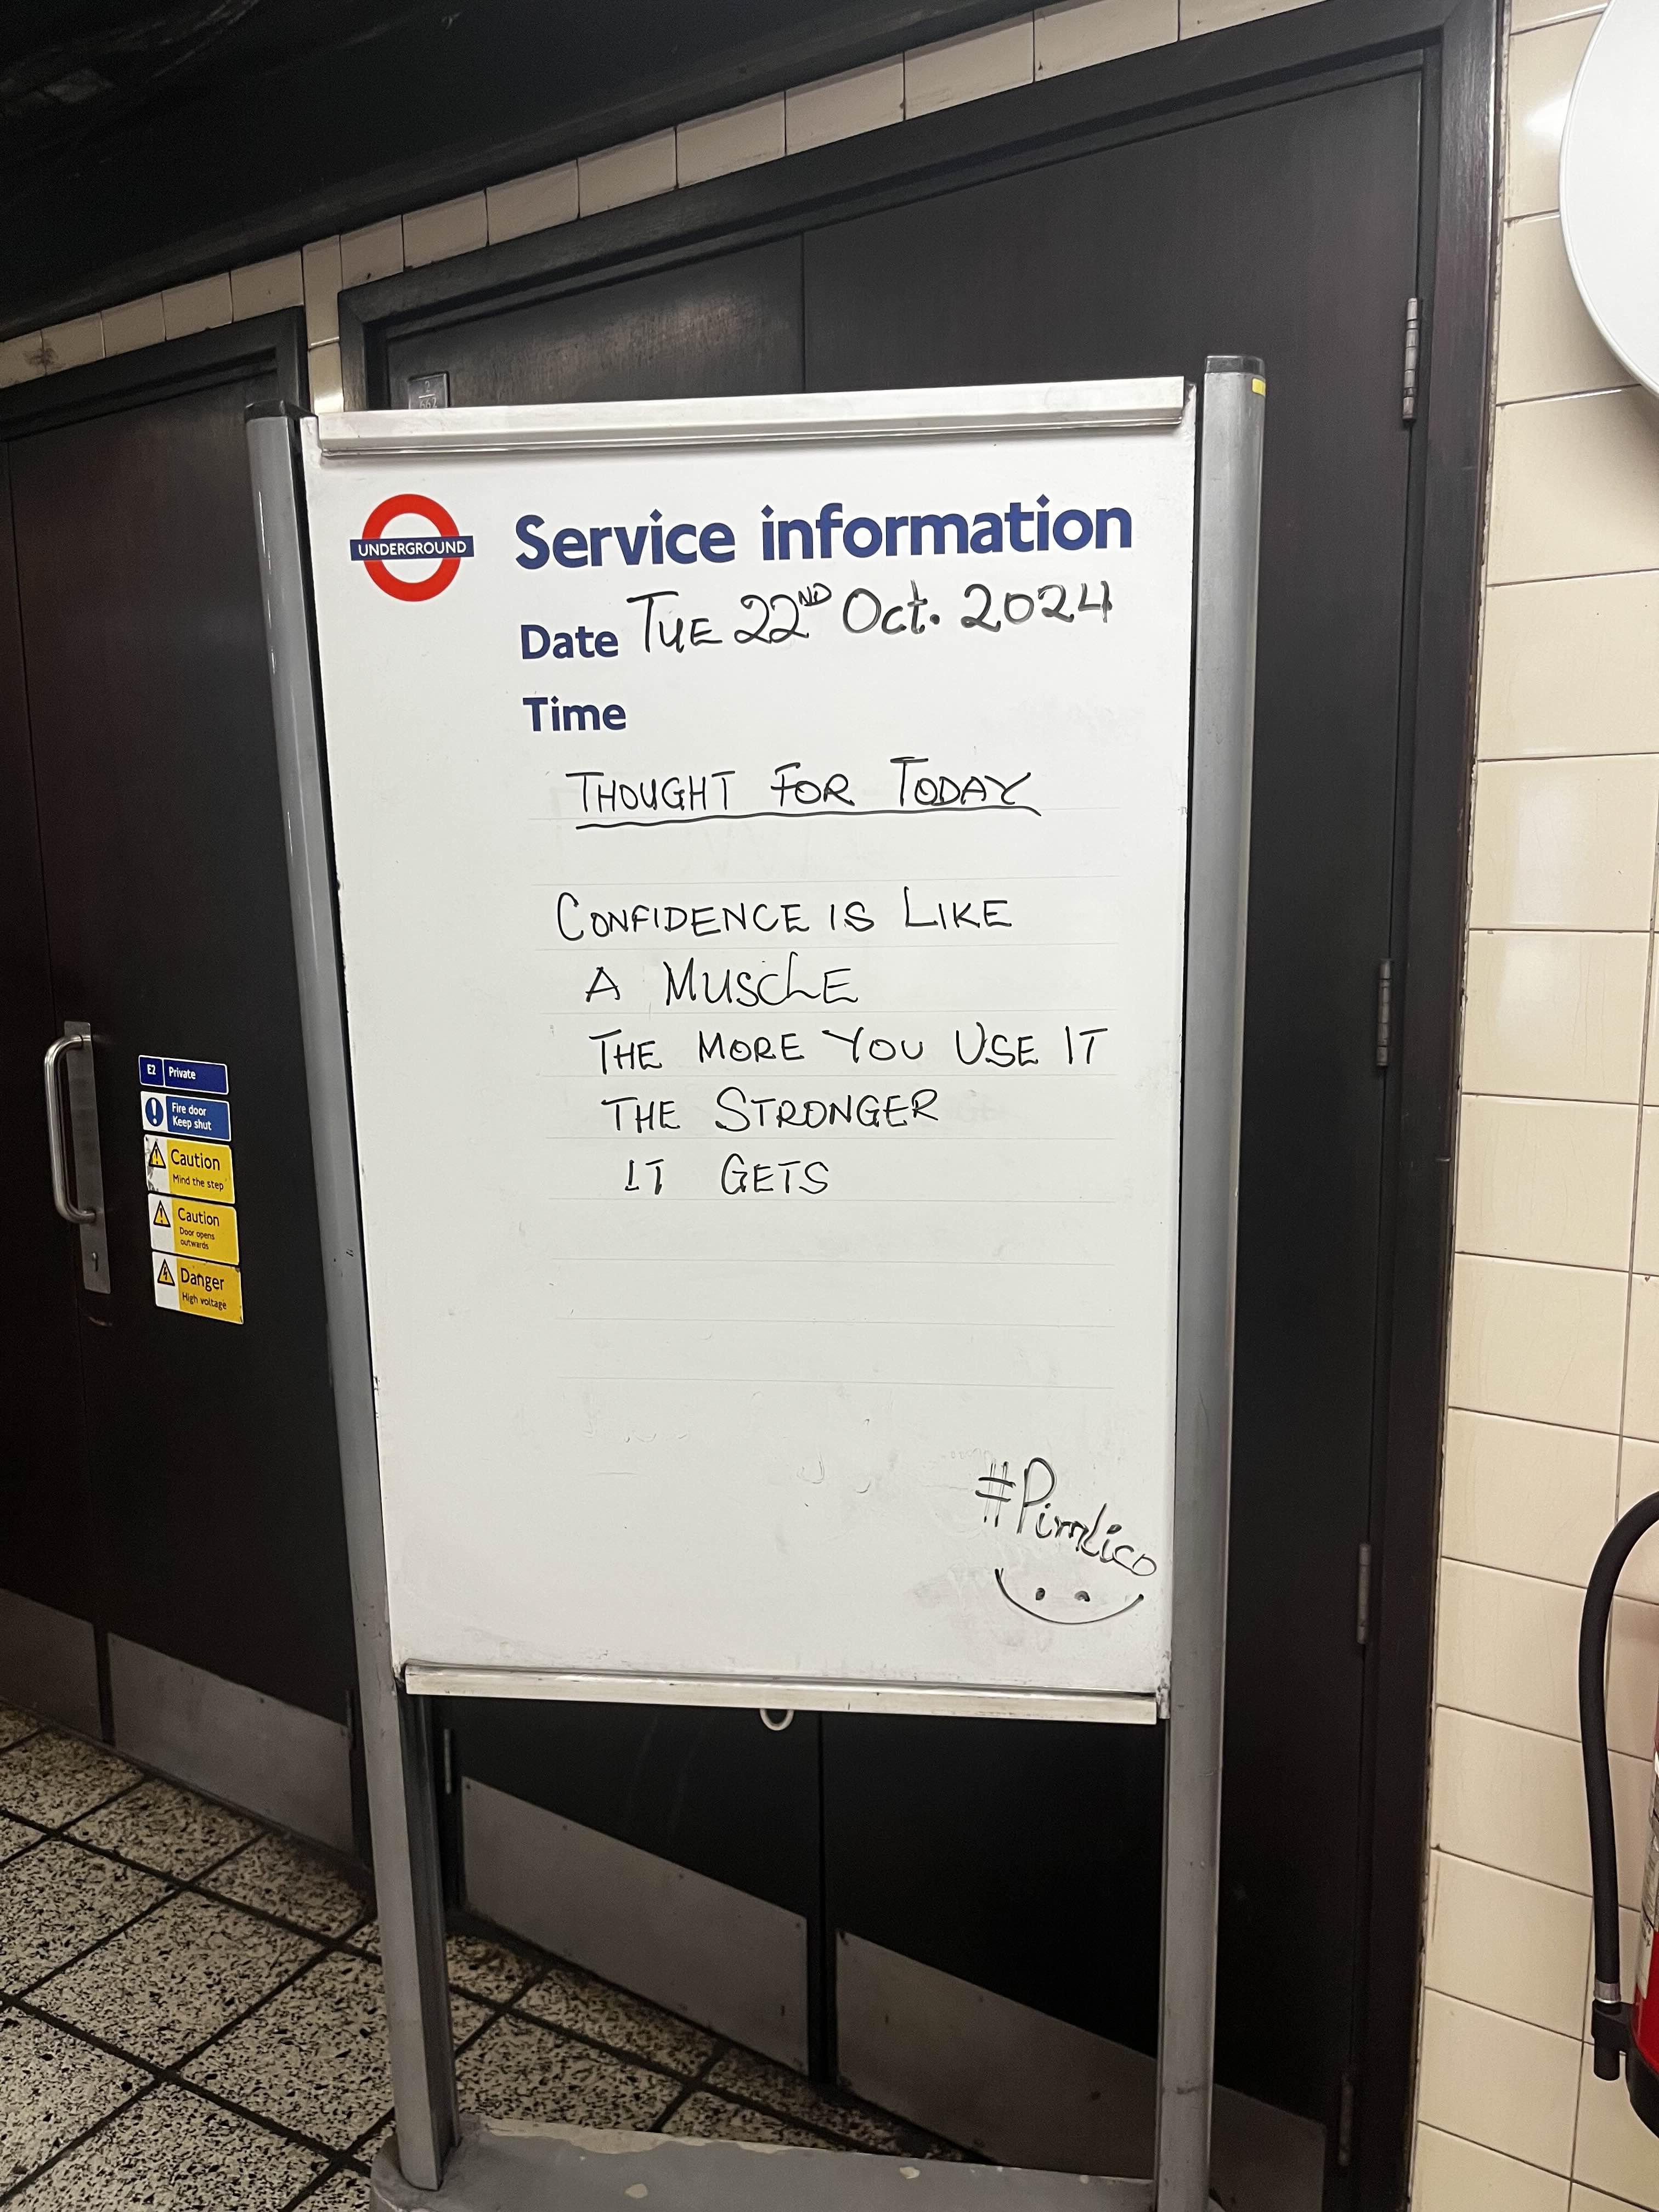 UNDERGROUND
Service information
Date TUE 22ND Oct. 2024
Time
THOUGHT FOR TODAY
CONFIDENCE IS LIKE
A MUSCLE
THE MORE YOU USE IT
THE STRONGER
IT GETS
#Pimlico
E2 Private
Fire door
Keep shut
Caution
Mind the step
Caution
Door opens
outwards
Danger
High voltage